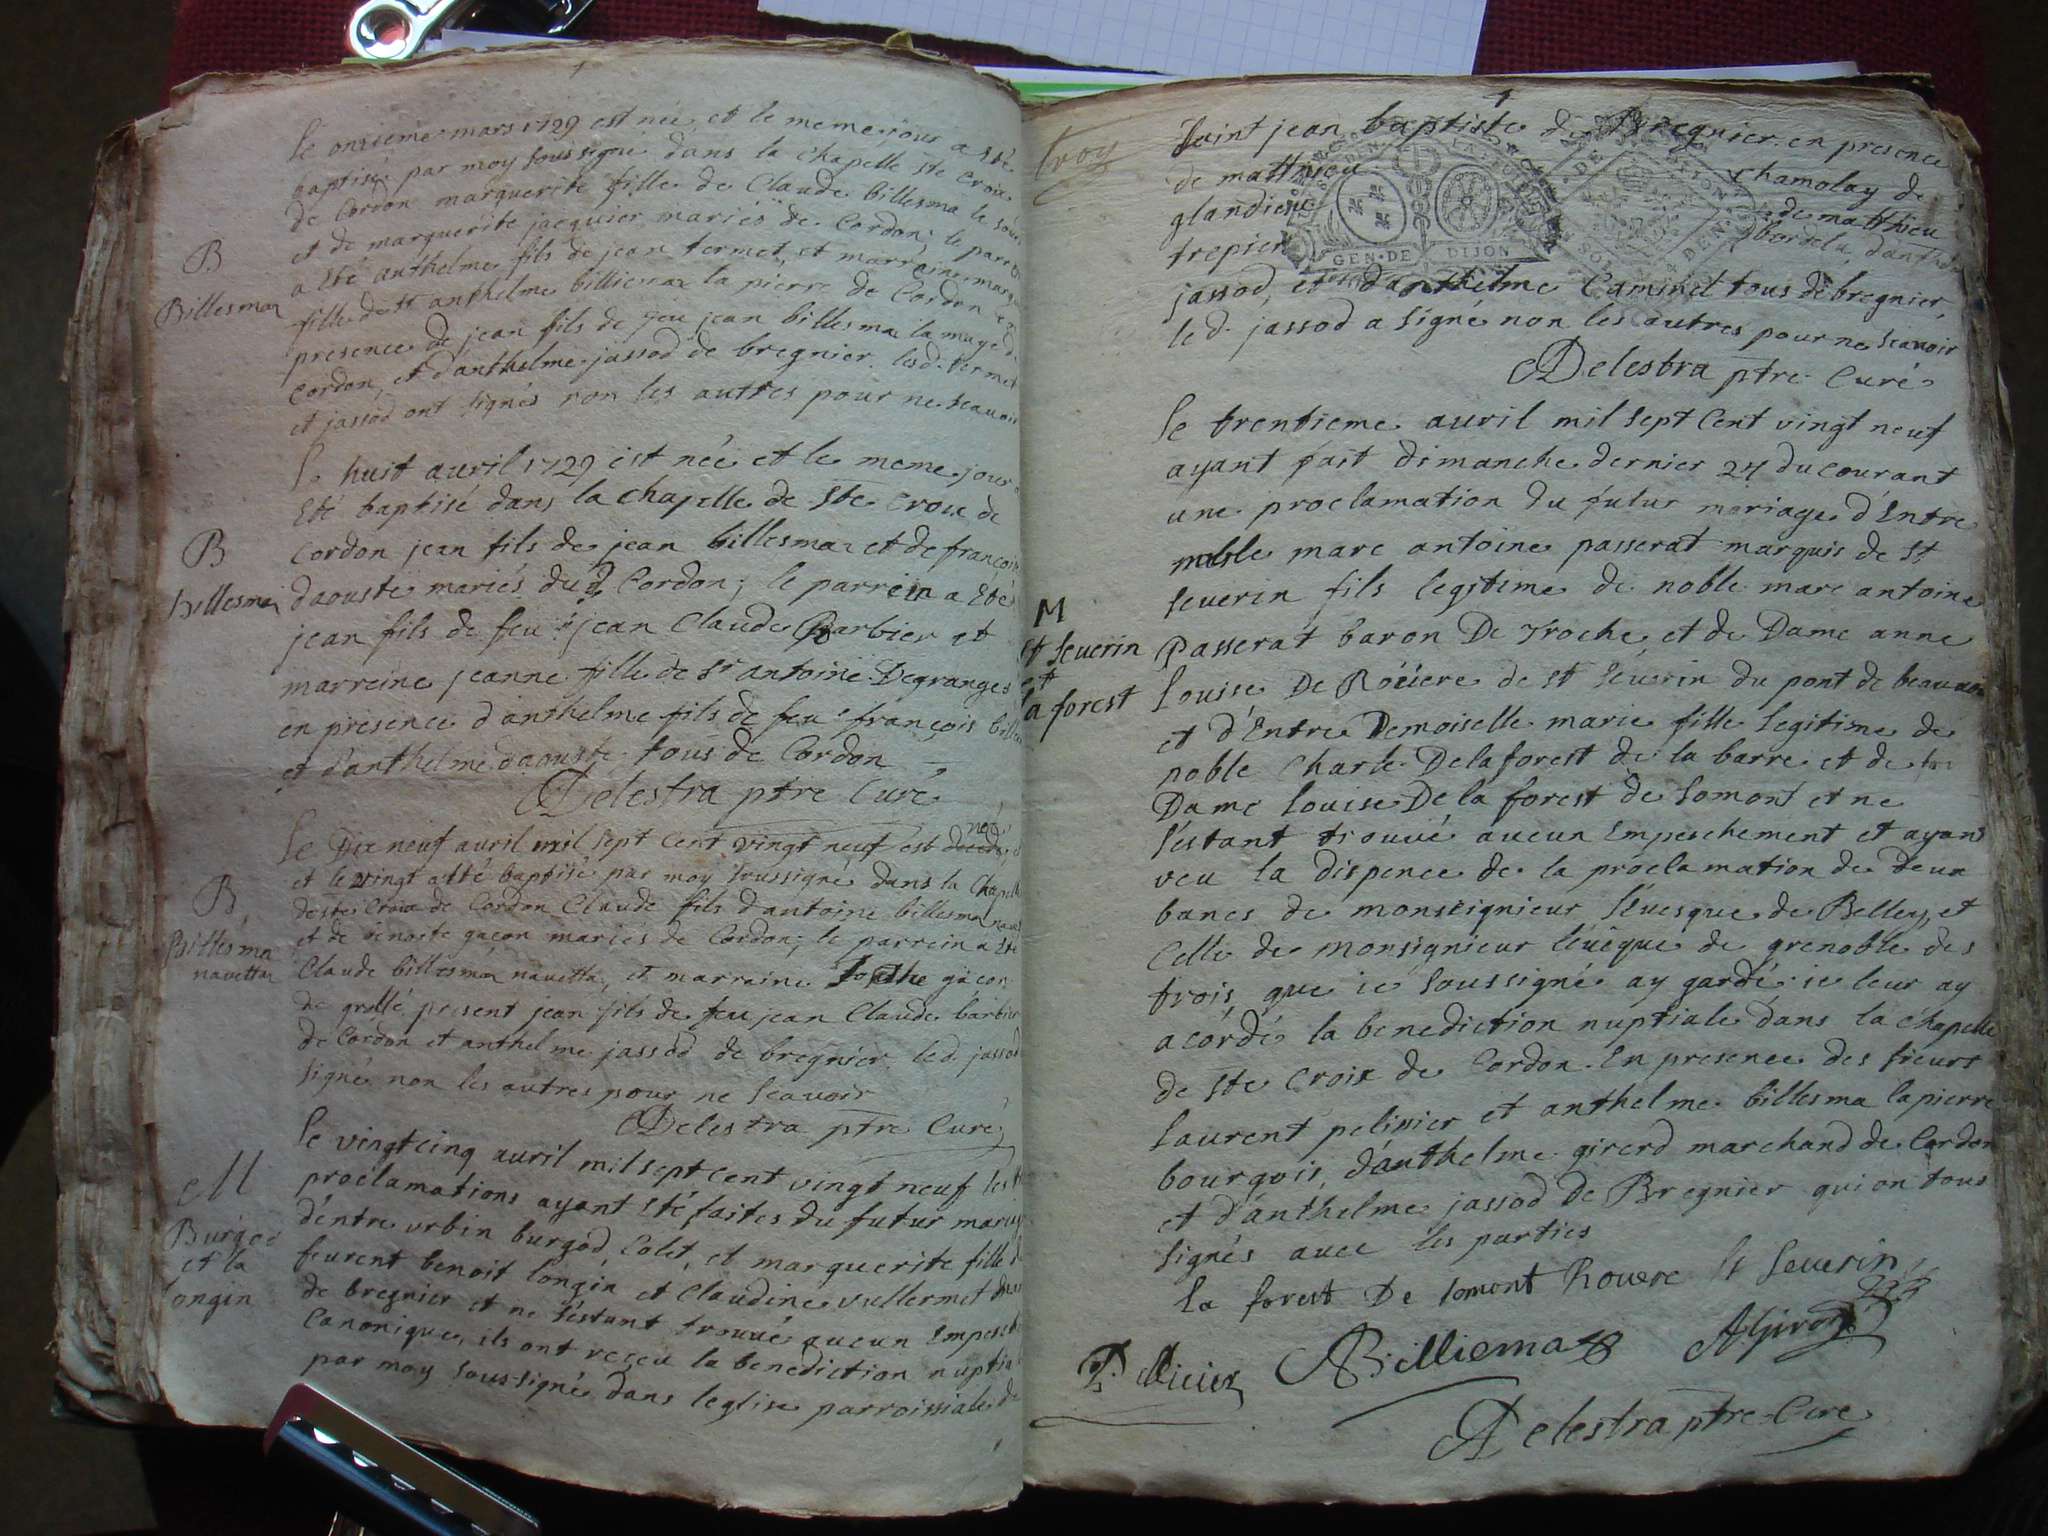 Le onzieme mars 1729 est née et le meme jour a été
baptisé par moy soussigné dans la chapelle ste croix
de Cordon marguerite fille de Claude billesma le
et de marguerite jacquier mariés de Cordon, le parrein
a Eté anthelme fils de jean termet, et marreine
fille de st anthelme billiemaz la pierre de Cordon en
presence de jean fils de feu jean billesma la muge de
Cordon, et d'anthelme jassod de bregnier. lesd. termet
et jassod ont signés non les autres pour ne scavoir
B
Billesmaz
Le huit avril 1729 est née et le meme jour a
Eté baptisé dans la chapelle de Ste Croix de
Cordon jean fils de jean billesmaz et de francoise
daouste mariés dud Cordon; le parrein a Eté
jean fils de feu jean Claude Barbier et
marreine jeanne fille de sr antoine Degranges
en presence d'anthelme fils de feu françois
et d'anthelme daouste tous de Cordon
Delestra ptre Curé
B
billesmaz
Le Dix neuf avril mil sept Cent vingt neuf est né
et le vingt a Eté baptisé par moy soussigné dans la Chapelle
de ste Croix de Cordon Claude fils d'antoine billesmaz
et de benoite gacon mariés de Cordon; le parrein a Eté
Claude billesmaz navetta, et marreine gacon
de present jean fils de feu jean Claude barbier
de Cordon et anthelme jassod de bregnier. led. jassod
signé non les autres pour ne scavoir
Delestra ptre Curé
B
Billesma
navettaz
Le vingtcinq avril mil sept cent vingt neuf les
proclamations ayant Eté faites du futur mariage
d'entre urbin burgod Colet, et marguerite fille de
feurent benoit longin et Claudine vullermet
de bregnier et ne s'estant trouvé aucun Empesch
Canonique, ils ont reçeu la benediction nuptiale
par moy soussigné dans leglise parroissiale de
M
Burgod
et la
longin
troy
Saint jean baptiste de Bregnier en presence
de matthieu chamolay de
glandieu de matthieu
trepier bordelu, d'anthelme
jassod, et d'anthelme Caminet tous de bregnier,
le d. jassod a signé non les autres pour ne scavoir
GEN. DE DIJON
Delestra ptre Curé
Le trentieme avril mil sept Cent vingt neuf
ayant fait dimanche dernier 24 du courant
une proclamation du futur mariage d'Entre
noble marc antoine passerat marquis de St
severin fils legitime de noble marc antoine
Passerat baron De Troche, et de Dame anne
Louise De Roüere de st Severin du pont de beauvoi
et d'Entre Demoiselle marie fille legitime de
noble Charle Delaforest de la barre et de
Dame Louise De la forest de Somont et ne
s'estant trouvé aucun Empeschement et ayant
veu la dispence de la proclamation de deux
bancs de monseignieur l'évesque de Belley, et
celle de monsignieur l'évêque de grenoble des
trois, que ie soussigné ay gardé ie leur ay
acórdé la benediction nuptiale dans la chapelle
de Ste Croix de Cordon. En presence des sieurs
Laurent pelissier et anthelme billesma lapierre
bourgois, d'anthelme girerd marchand de Cordon
et d'anthelme jassod de Bregnier qui on tous
signés avec les parties
M
St Severin
et
la forest
La forest De Somont Rouere St Severin
Pellicier Billiemaz AGirod
Delestra ptre Cure